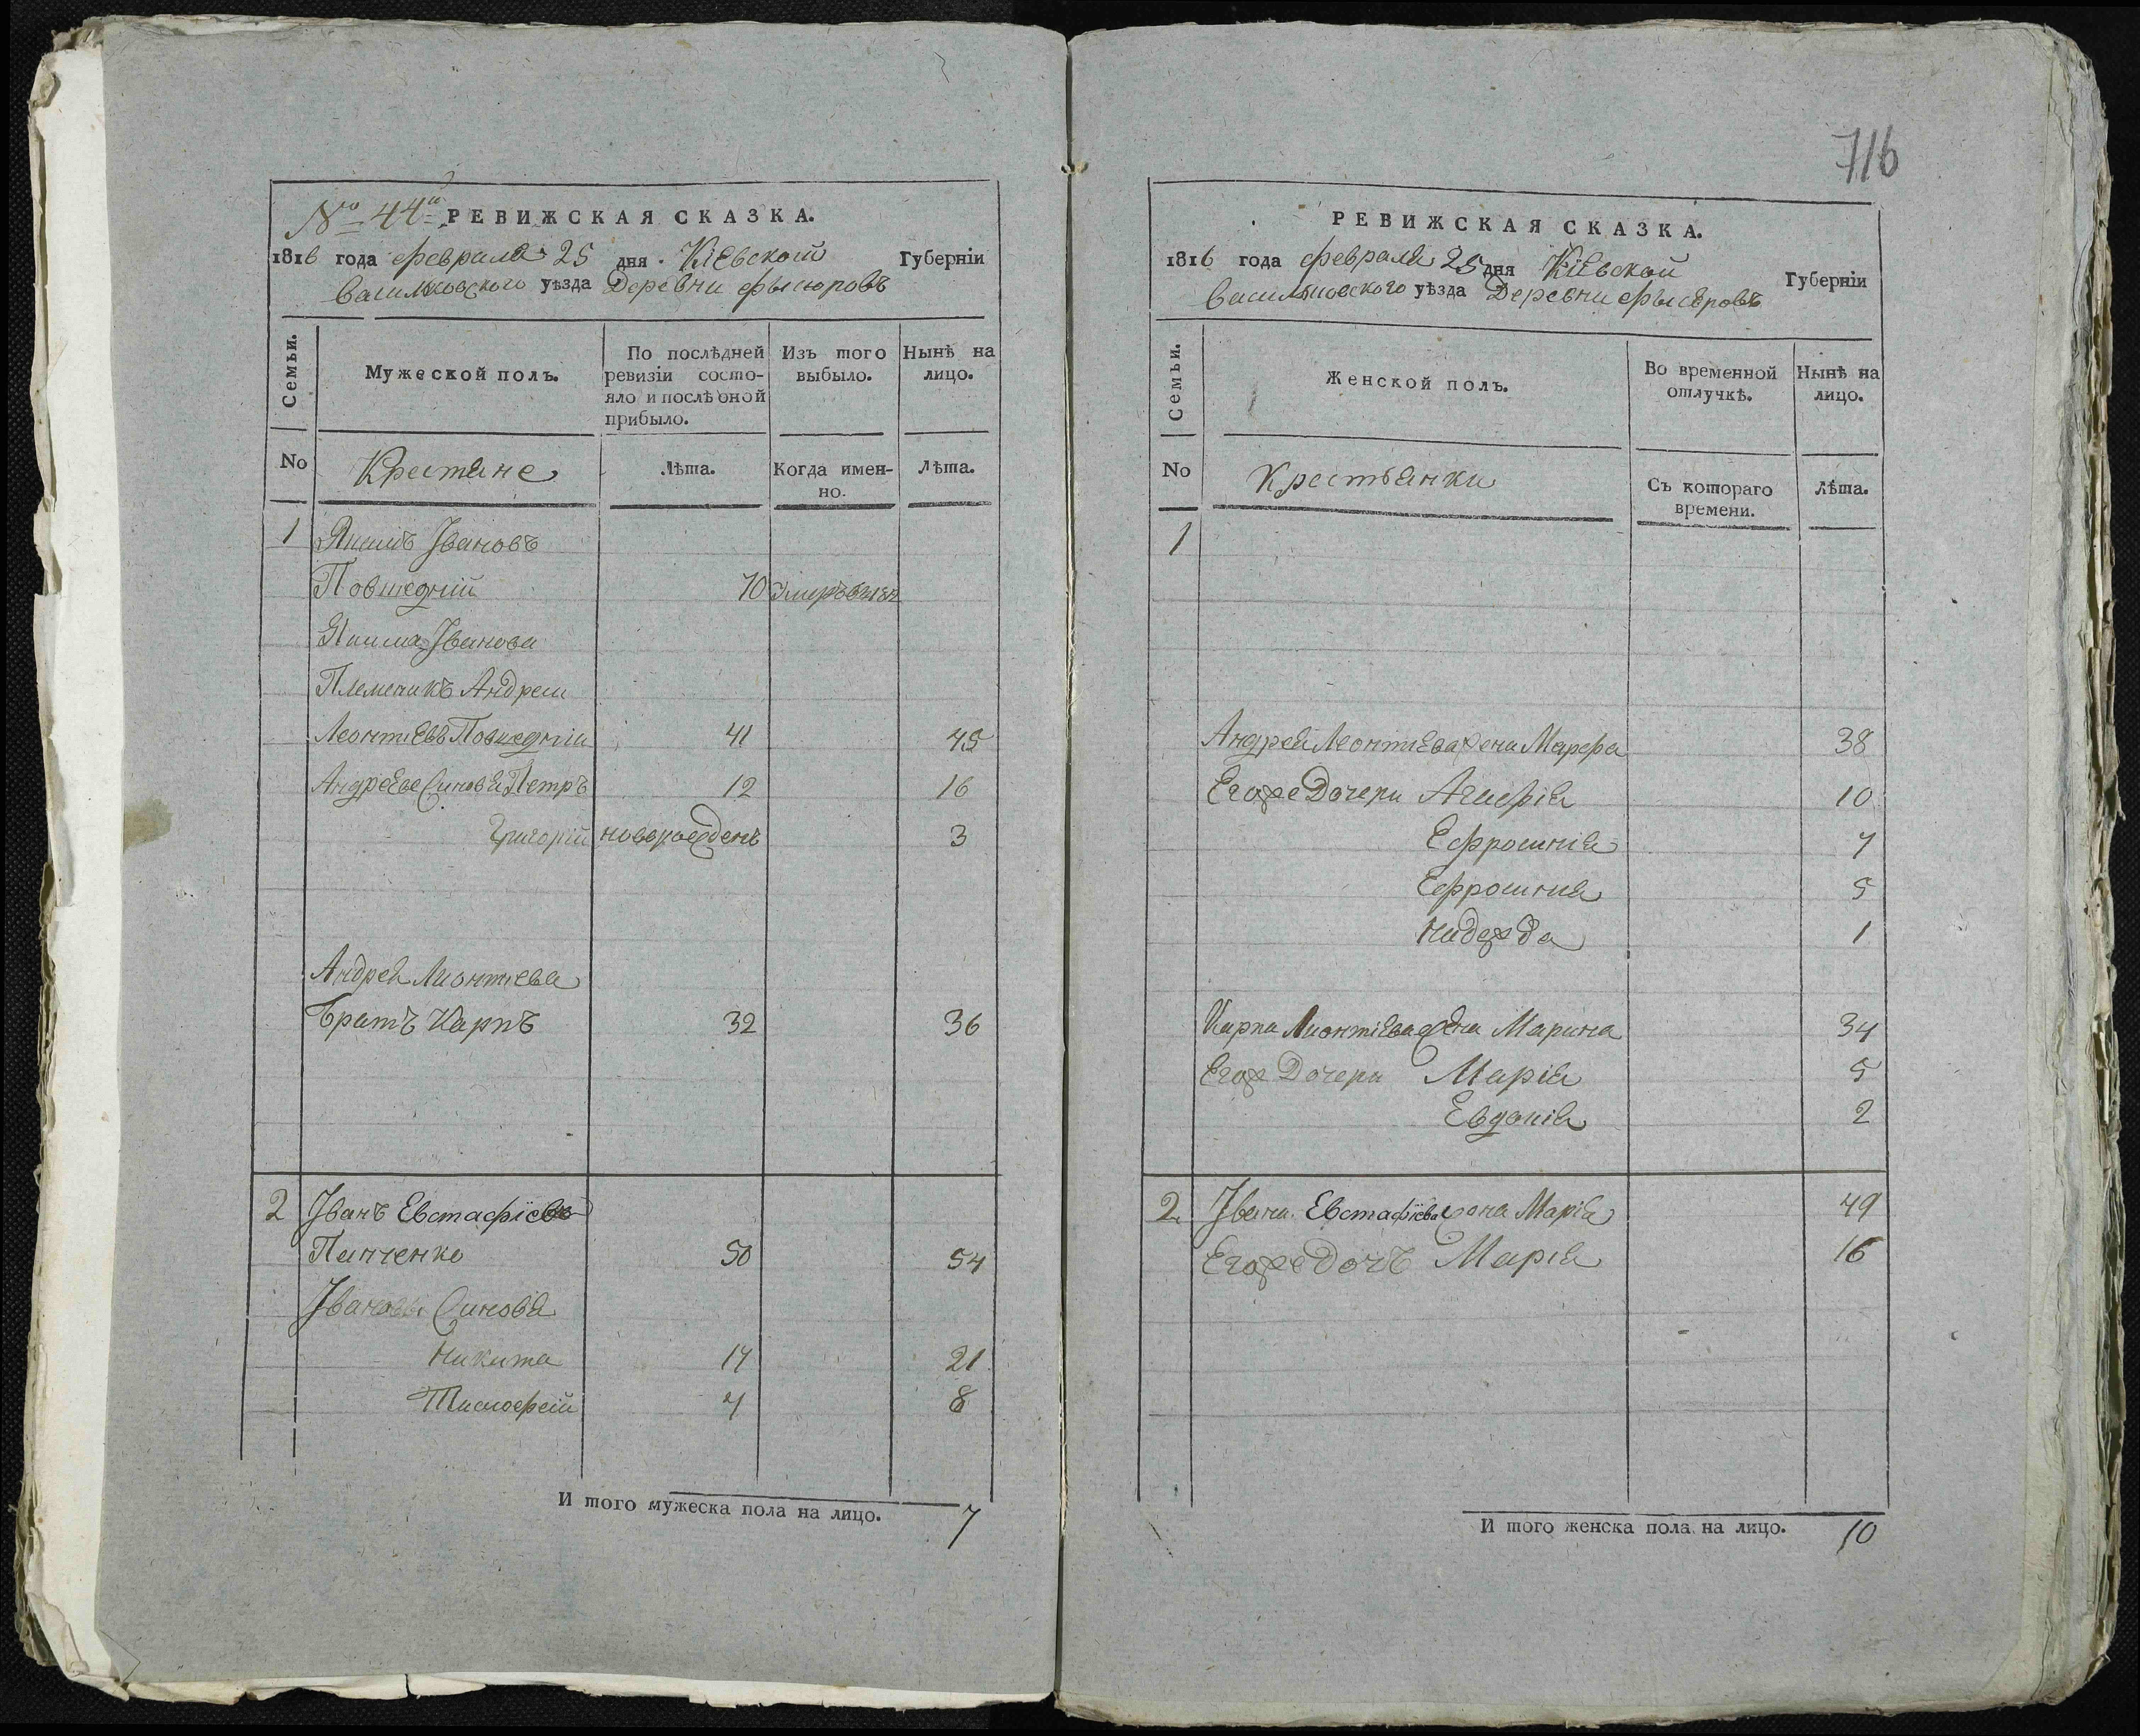 716
№ 44й РЕВИЖСКАЯ СКАЗКА.
1816 года февраля 25 дня Кіевской Губерніи
Васильковского уѣзда Деревни
Семьи.
Мужеской полъ.
По послѣдней ревизіи состо-
яло и послѣ оной
прибыло.
Изъ того
выбыло.
Нынѣ на
лицо.
No Крестяне Лѣта. Когда имен-
но. Лѣта.
1 Якимъ Івановъ
70
Якима Іванова
Племеникъ Андрей
Леонтіевъ 41 45
Андрѣеве Синовя Петръ 12 16
Григорій новорожденъ 3
Андрея Лионтіева
Братъ Карпъ 32 36
2 Іванъ Евстафіевъ
Панченко 50 54
Івановы Синовя
Никита 17 21
Тимофей 4 8
И того мужеска пола на лицо. 7
РЕВИЖСКАЯ СКАЗКА.
1816 года февраля 25 дня Кіевской Губерніи
Васильковского уѣзда Деревни
Семьи.
Женской полъ.
Во временной
отлучкѣ.
Нынѣ на
лицо.
No Крестьянки Съ котораго
времени. Лѣта.
1
Андрея Леонтіева жена Марфа 38
Егоже Дочери 10
Ефросинія 7
Ефросиния 5
Надежда 1
Карпа Лионтіева жена Марина 34
Егож Дочери Марія 5
Евдокія 2
2 Івана Евстафіева жона Марія 49
Егоже Дочъ Марія 16
И того женска пола на лицо. 10